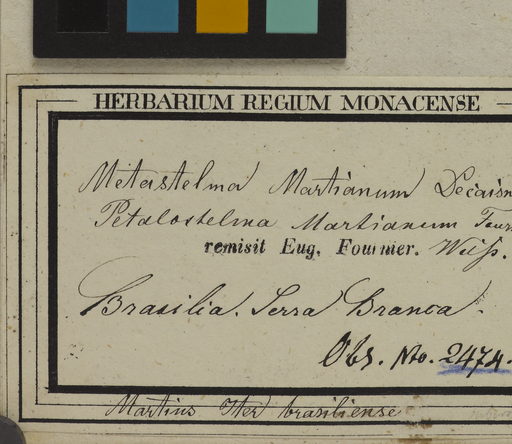 HERBARIUM REGIUM MONACENSE
Metastelma Martianum Decaisn
Petalostelma Martianum Fourn
remisit Eug. Fournier.
Brasilia. Serra Branca.
Obs. No. 2474.
Martius Iter brasiliense